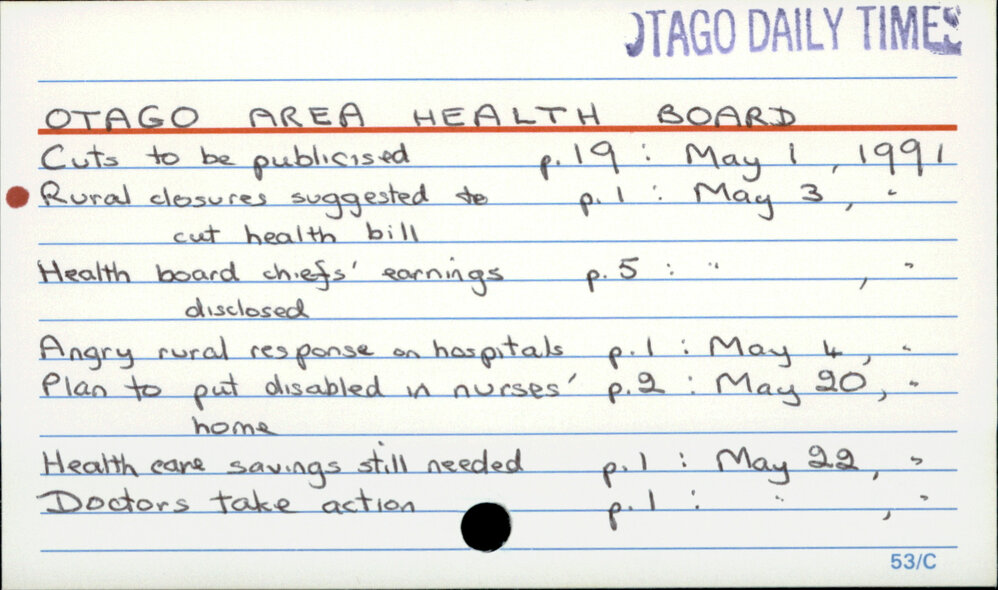 OTAGO DAILY TIMES
OTAGO AREA HEALTH BOARD
Cuts to be publicised p.19 : May 1, 1991
Rural closures suggested to p.1 : May 3, "
cut health bill
Health board chiefs' earnings p.5 : " , "
disclosed
Angry rural response on hospitals p.1 : May 4, "
Plan to put disabled in nurses' p.2 : May 20, "
home
Health care savings still needed p.1 : May 22, "
Doctors take action p.1 : " , "
53/C